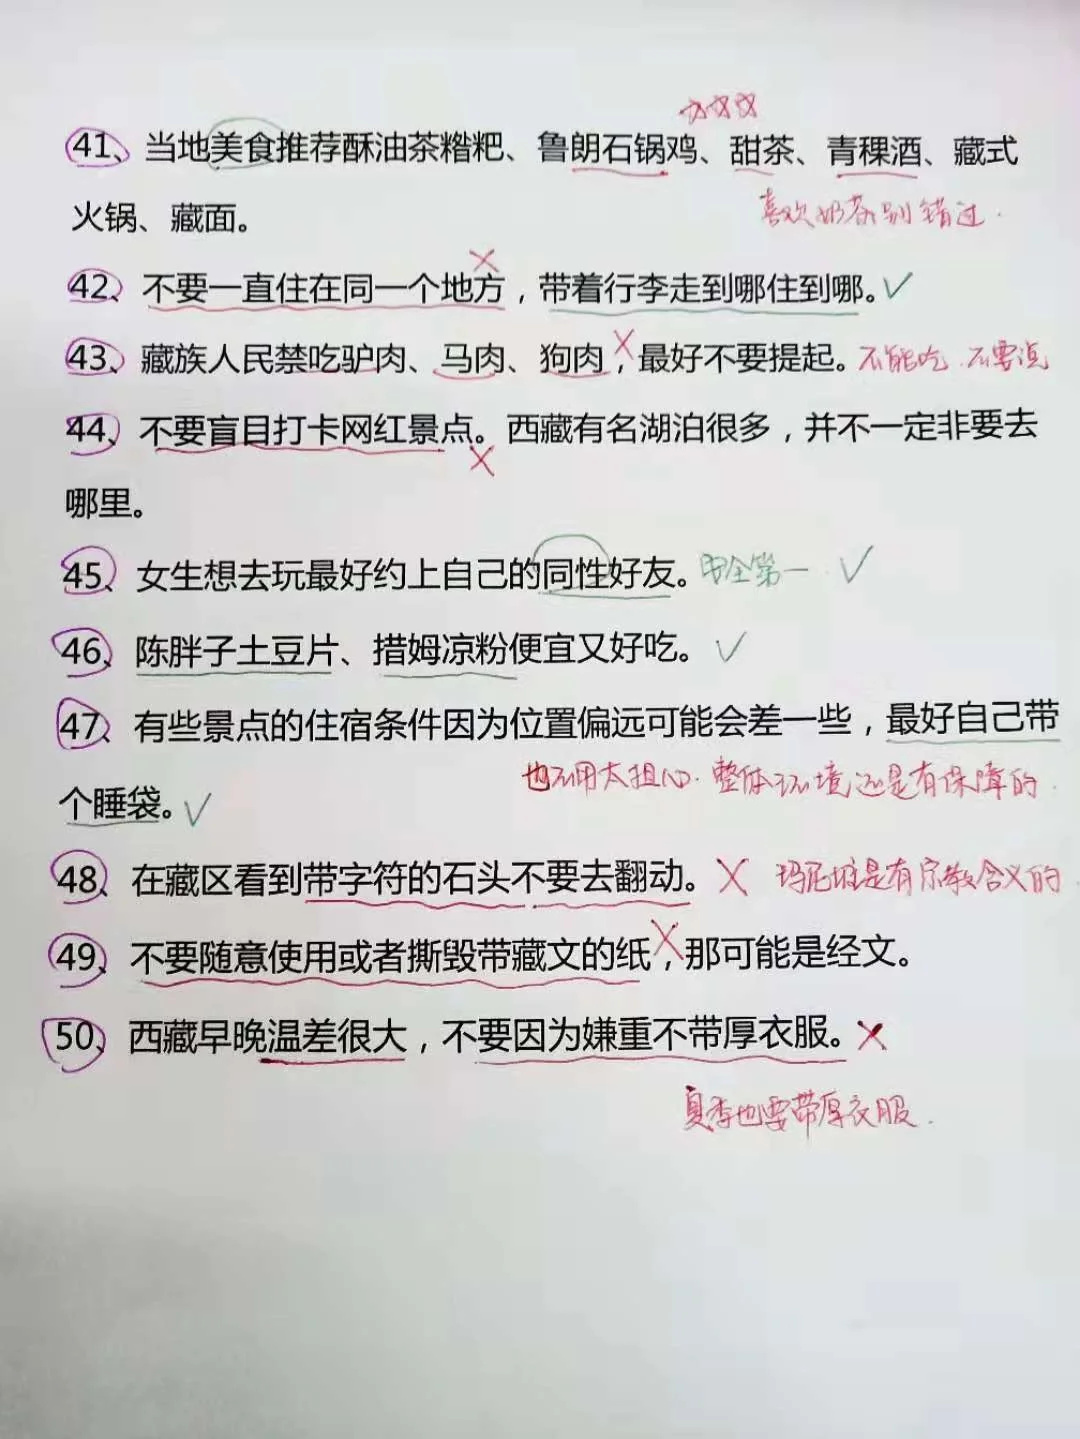 41、当地美食推荐酥油茶糌粑、鲁朗石锅鸡、甜茶、青稞酒、藏式
喜欢奶茶别错过.
火锅、藏面。
42、不要一直住在同一个地方，带着行李走到哪住到哪。
43、藏族人民禁吃驴肉、马肉、狗肉，最好不要提起。不能吃 不要说
44、不要盲目打卡网红景点。西藏有名湖泊很多，并不一定非要去
哪里。
45、女生想去玩最好约上自己的同性好友。安全第一
46、陈胖子土豆片、措姆凉粉便宜又好吃。
47、有些景点的住宿条件因为位置偏远可能会差一些，最好自己带
也不用太担心.整体环境还是有保障的.
个睡袋。
48、在藏区看到带字符的石头不要去翻动。玛尼堆是有宗教含义的
49、不要随意使用或者撕毁带藏文的纸，那可能是经文。
50、西藏早晚温差很大，不要因为嫌重不带厚衣服。
夏季也要带厚衣服.